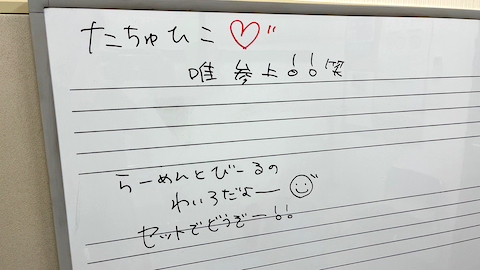 たこちゅひこ♡"
唯参上!!笑
らーめんとびーるの
わいろだよー☺"
セットでどうぞー!!